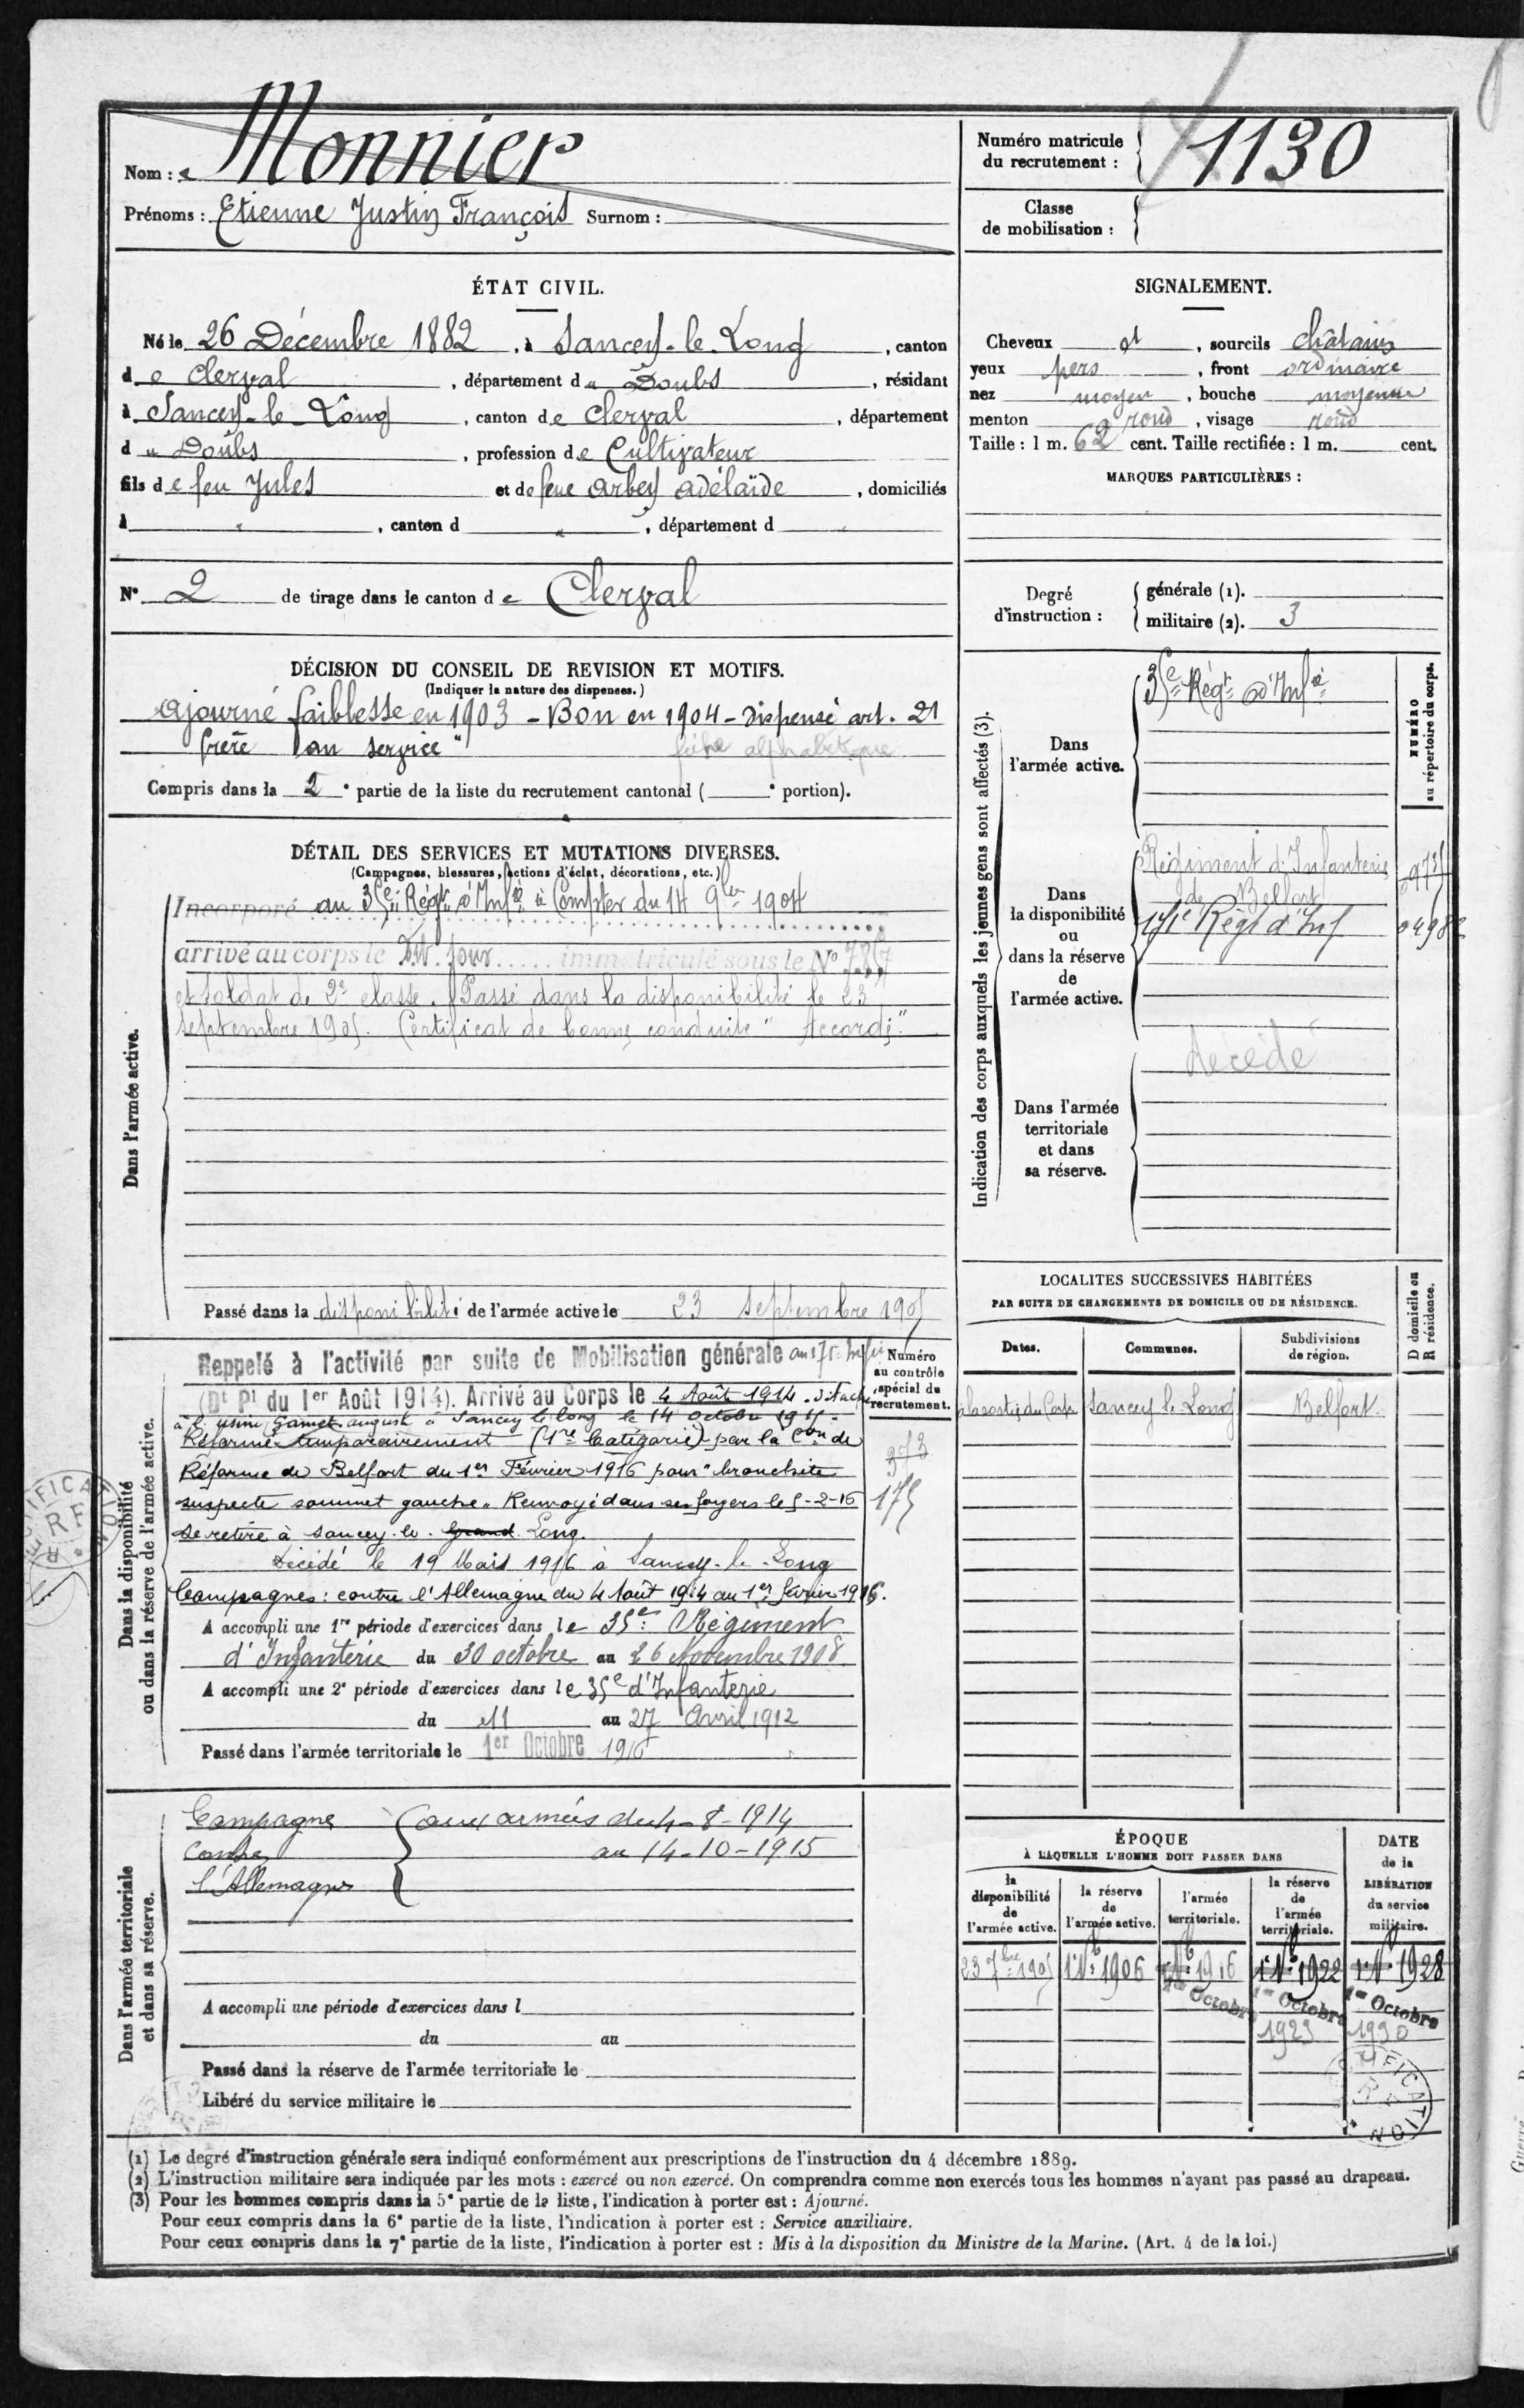 Nom : Monnier
Prénoms : Etienne Justin François Surnom :
Numéro matricule du recrutement : 1130
Classe de mobilisation :
ÉTAT CIVIL.
Né le 26 Décembre 1882, à Sancey-le-Long, canton
de Clerval, département du Doubs, résidant
à Sancey-le-Long, canton de Clerval, département
du Doubs, profession de Cultivateur
fils de feu Jules et de feue Arbey Adélaïde, domiciliés
à " , canton d " , département d "
N° 2 de tirage dans le canton de Clerval
DÉCISION DU CONSEIL DE REVISION ET MOTIFS.
(Indiquer la nature des dispenses.)
Ajourné faiblesse en 1903 - Bon en 1904 - Dispensé art. 21
frère "au service" fiche alphabétique
Compris dans la 2e partie de la liste du recrutement cantonal ( e portion).
DÉTAIL DES SERVICES ET MUTATIONS DIVERSES.
(Campagnes, blessures, actions d'éclat, décorations, etc.)
Dans l'armée active.
Incorporé au 35e Régt d'Infie à Compter du 14 9bre 1904
arrivé au corps le dit jour immatriculé sous le N°
et soldat de 2e classe. Passé dans la disponibilité le 23
septembre 1905. Certificat de bonne conduite "Accordé"
Passé dans la disponibilité de l'armée active le 23 septembre 1905
Dans la disponibilité
ou dans la réserve de l'armée active.
Numéro au contrôle spécial du recrutement.
973
175
Rappelé à l'activité par suite de Mobilisation générale au 171e Infie
(Dt Pl du 1er Août 1914). Arrivé au Corps le 4 Août 1914. Détaché
à l'usine Gamet august à Sancey le long le 14 octobre 1915.
Réformé temporairement (1re Catégorie) par la Con de
Réforme de Belfort du 1er Février 1916 pour "bronchite
suspecte sommet gauche" Renvoyé dans ses foyers le 5-2-16
se retire à Sancey-le-Grand Long.
Décédé le 19 Mars 1916 à Sancey-le-Long
Campagnes : contre l'Allemagne du 4 Août 1914 au 1er février 1916.
A accompli une 1re période d'exercices dans le 35e Régiment
d'Infanterie du 30 octobre au 26 Novembre 1908
A accompli une 2e période d'exercices dans le 35e d'Infanterie
du 11 au 27 Avril 1912
Passé dans l'armée territoriale le 1er Octobre 1916
Dans l'armée territoriale
et dans sa réserve.
Campagne { aux armées du 4-8-1914
contre au 14-10-1915
l'Allemagne
A accompli une période d'exercices dans l
du au
Passé dans la réserve de l'armée territoriale le
Libéré du service militaire le
SIGNALEMENT.
Cheveux et , sourcils châtains
yeux pers , front ordinaire
nez moyen , bouche moyenne
menton rond , visage rond
Taille : 1 m. 62 cent. Taille rectifiée : 1 m. cent.
MARQUES PARTICULIÈRES :
Degré d'instruction : générale (1).
militaire (2). 3
Indication des corps auxquels les jeunes gens sont affectés (3).
NUMÉRO
au répertoire du corps.
Dans l'armée active.
35e Régt d'Infie
Dans la disponibilité ou dans la réserve de l'armée active.
Régiment d'Infanterie
de Belfort
171e Régt d'Inf 04982
Dans l'armée territoriale et dans sa réserve.
Décédé
LOCALITES SUCCESSIVES HABITÉES
PAR SUITE DE CHANGEMENTS DE DOMICILE OU DE RÉSIDENCE.
Dates. Communes. Subdivisions de région. D domicile ou R résidence.
à la sortie du Corps Sancey le Long Belfort.
ÉPOQUE
À LAQUELLE L'HOMME DOIT PASSER DANS
la disponibilité de l'armée active.
la réserve de l'armée active.
l'armée territoriale.
la réserve de l'armée territoriale.
DATE de la LIBÉRATION du service militaire.
23 7bre 1905 1 Nbre 1906 1 Nbre 1916 1 Nbre 1922 1 Nbre 1928
1er Octobre 1er Octobre 1er Octobre
1923 1930
(1) Le degré d'instruction générale sera indiqué conformément aux prescriptions de l'instruction du 4 décembre 1889.
(2) L'instruction militaire sera indiquée par les mots : exercé ou non exercé. On comprendra comme non exercés tous les hommes n'ayant pas passé au drapeau.
(3) Pour les hommes compris dans la 5e partie de la liste, l'indication à porter est : Ajourné.
Pour ceux compris dans la 6e partie de la liste, l'indication à porter est : Service auxiliaire.
Pour ceux compris dans la 7e partie de la liste, l'indication à porter est : Mis à la disposition du Ministre de la Marine. (Art. 4 de la loi.)